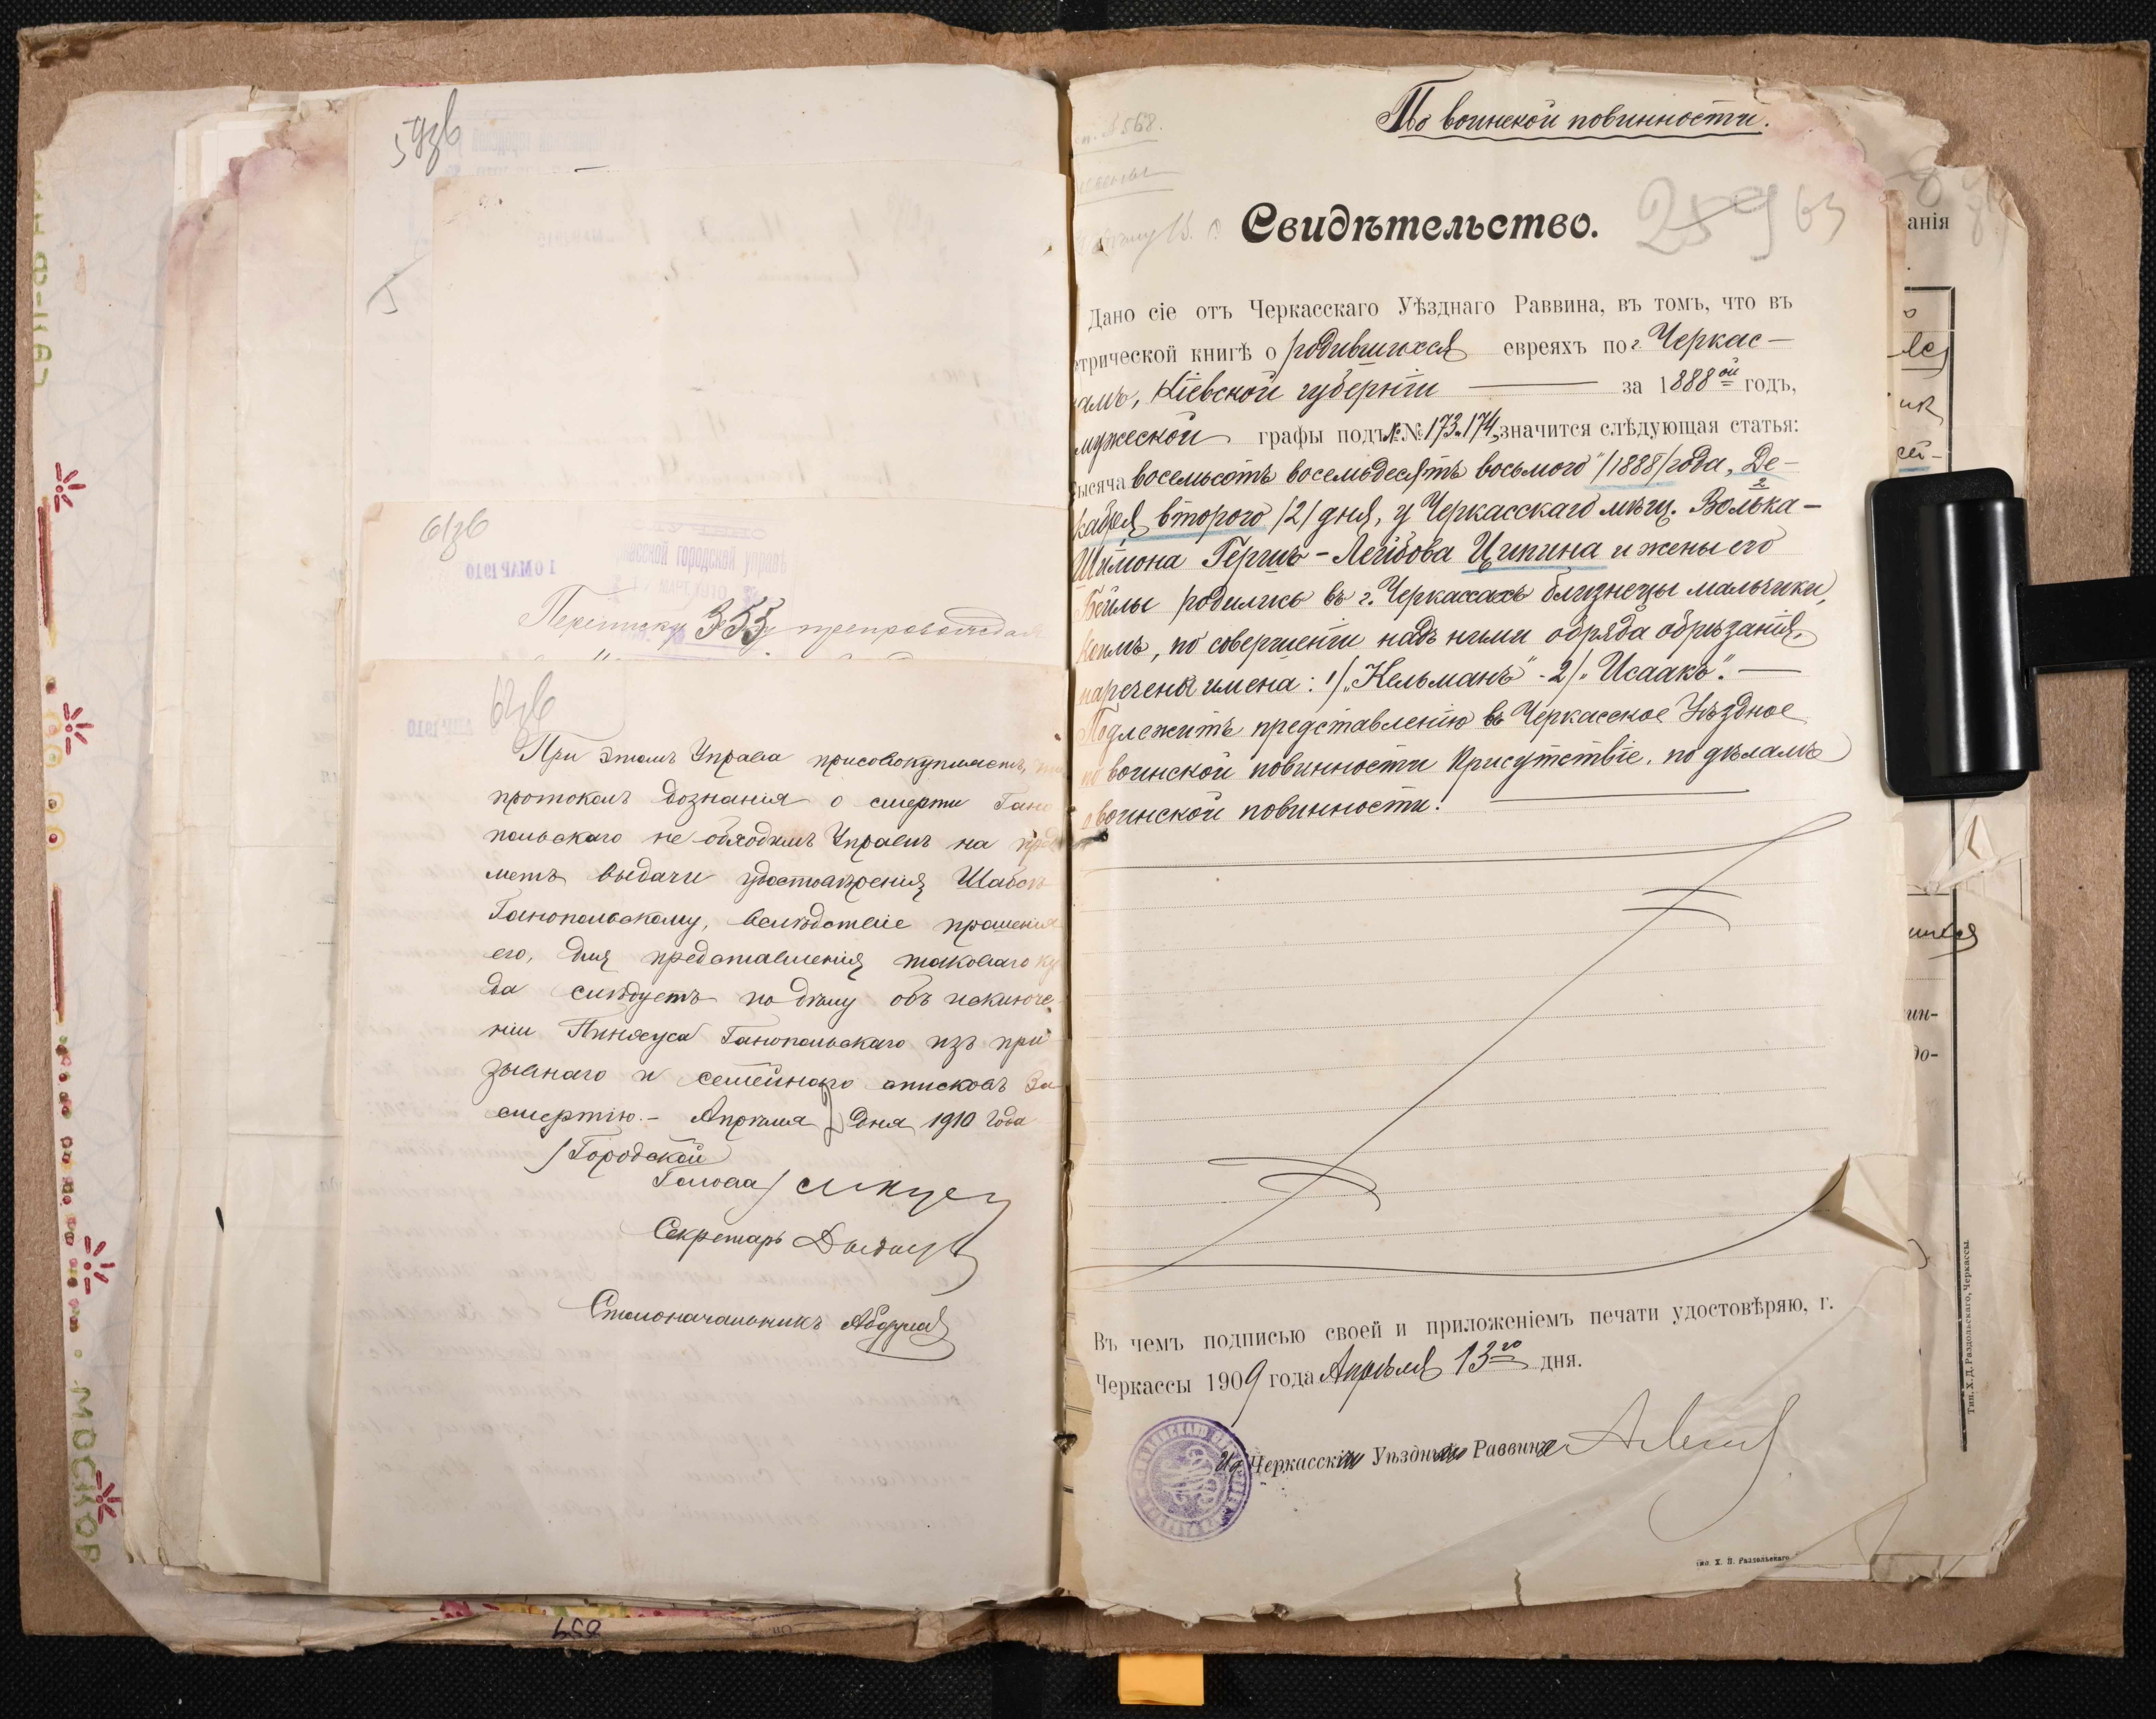 59зв
61зв
10 МАР 1910
Переписку 355 препровождая
62зв
При этомъ Управа присовокупляетъ, что
протоколъ дознанія о смерти Гано
польскаго не обходимъ Управѣ на пред
метъ выдачи удостовѣренія Шавок
Ганопольскому, вслѣдствіе прошенія
его, для представленія таковаго ку
да слѣдуетъ по дѣлу объ исключе
ніи Пинхуса Ганопольскаго изъ при
зывнаго и семейнаго списковъ за
смертію. – Апрѣля дня 1910 года
/Городской
Голова/
Секретарь
Столоначальникъ
859
МОСКОВ
По воинской повинности.
568.
Свидѣтельство.
259 63
Дано сіе отъ Черкасскаго Уѣзднаго Раввина, въ томъ, что въ
трической книгѣ о родившихся евреяхъ по г. Черкас–
амъ, Кіевской губерніи за 1888ой годъ,
мужеской графы подъ № № 173.174, значится слѣдующая статья:
ысяча восемьсотъ восемьдесятъ восьмого "/1888/ года, Де–
кабря второго /2/ дня, у Черкасскаго мѣщ. Волька–
Шимона Гершъ-Лейбова Ципина и жены его
Бейлы родились въ г. Черкассахъ близнецы мальчики,
коимъ, по совершеніи надъ ними обряда обрѣзанія,
наречены имена: 1/ „Кельманъ" - 2/ „Исаакъ". —
Подлежитъ представленію въ Черкасское Уѣздное
по воинской повинности Присутствіе, по дѣламъ
о воинской повинности.
Въ чемъ подписью своей и приложеніемъ печати удостовѣряю, г.
Черкассы 1909 года Апрѣля 13го дня.
Ид Черкасскій Уѣздный Раввинъ
Тип. Х. Д. Раздольскаго
анія
ин-
до-
Тип. Х. Д. Раздольскаго, Черкассы.